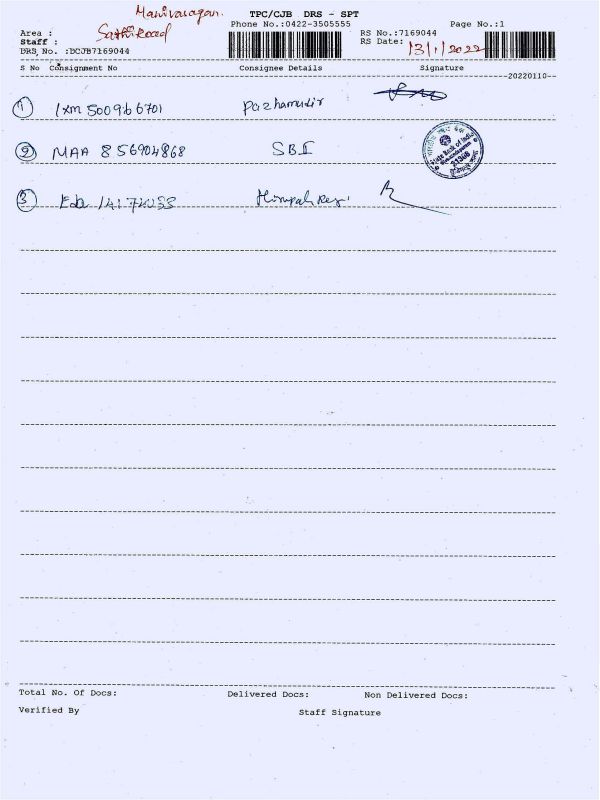 Manivasagan.
TPC/CJB DRS - SPT
Phone No.:0422-3505555
Page No.:1
Area :
Sathi Road
RS No.:7169044
Staff :
RS Date:
13/1/2022
DRS No. :DCJB7169044
S No Consignment No Consignee Details Signature
--20220110--
1 Ixm 500966701 Pazhamudir
2 MAA 856904868 SBI
State Bank of India
3
Total No. Of Docs: Delivered Docs: Non Delivered Docs:
Verified By Staff Signature